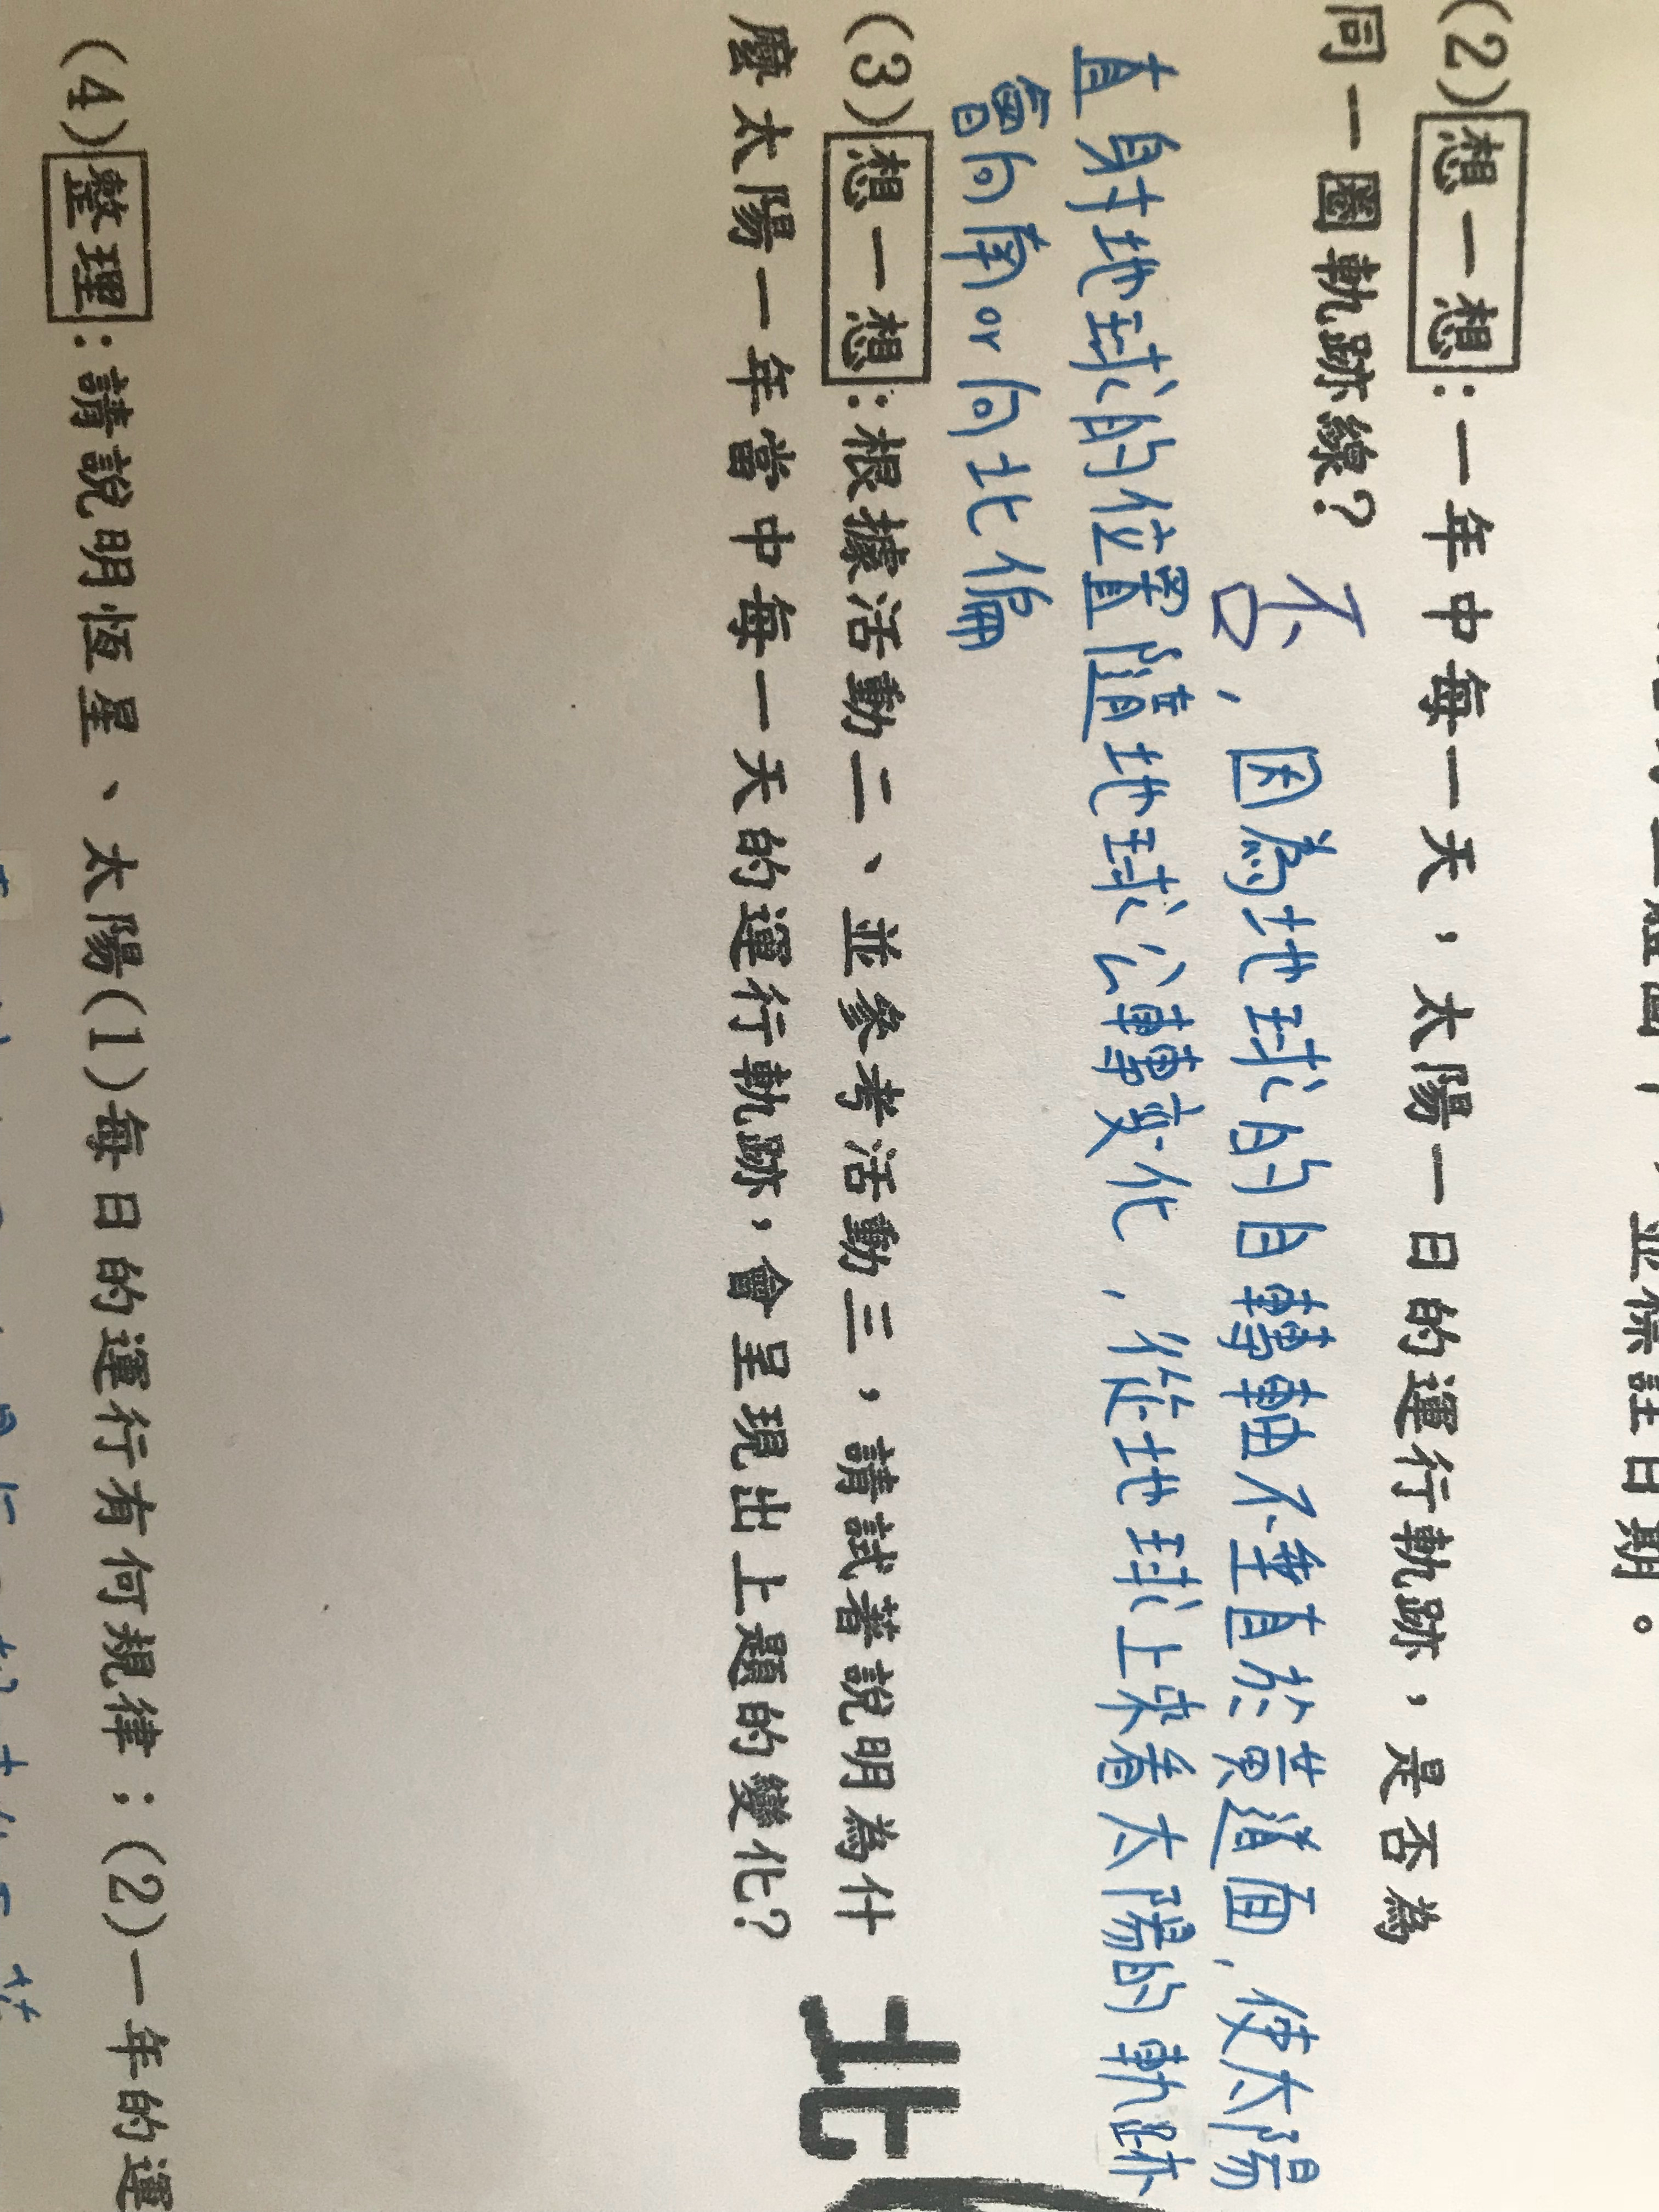 並標註日期。
(2)想一想:一年中每一天,太陽一日的運行軌跡,是否為
同一圈軌跡線?
否,因為地球的自轉軸不垂直於黃道面,使太陽
直射地球的位置隨地球公轉變化,從地球上來看太陽的軌跡
會向南or向北偏
(3)想一想:根據活動二、並參考活動三,請試著說明為什
麼太陽一年當中每一天的運行軌跡,會呈現出上題的變化?
北
(4)整理:請說明恆星、太陽(1)每日的運行有何規律;(2)一年的運